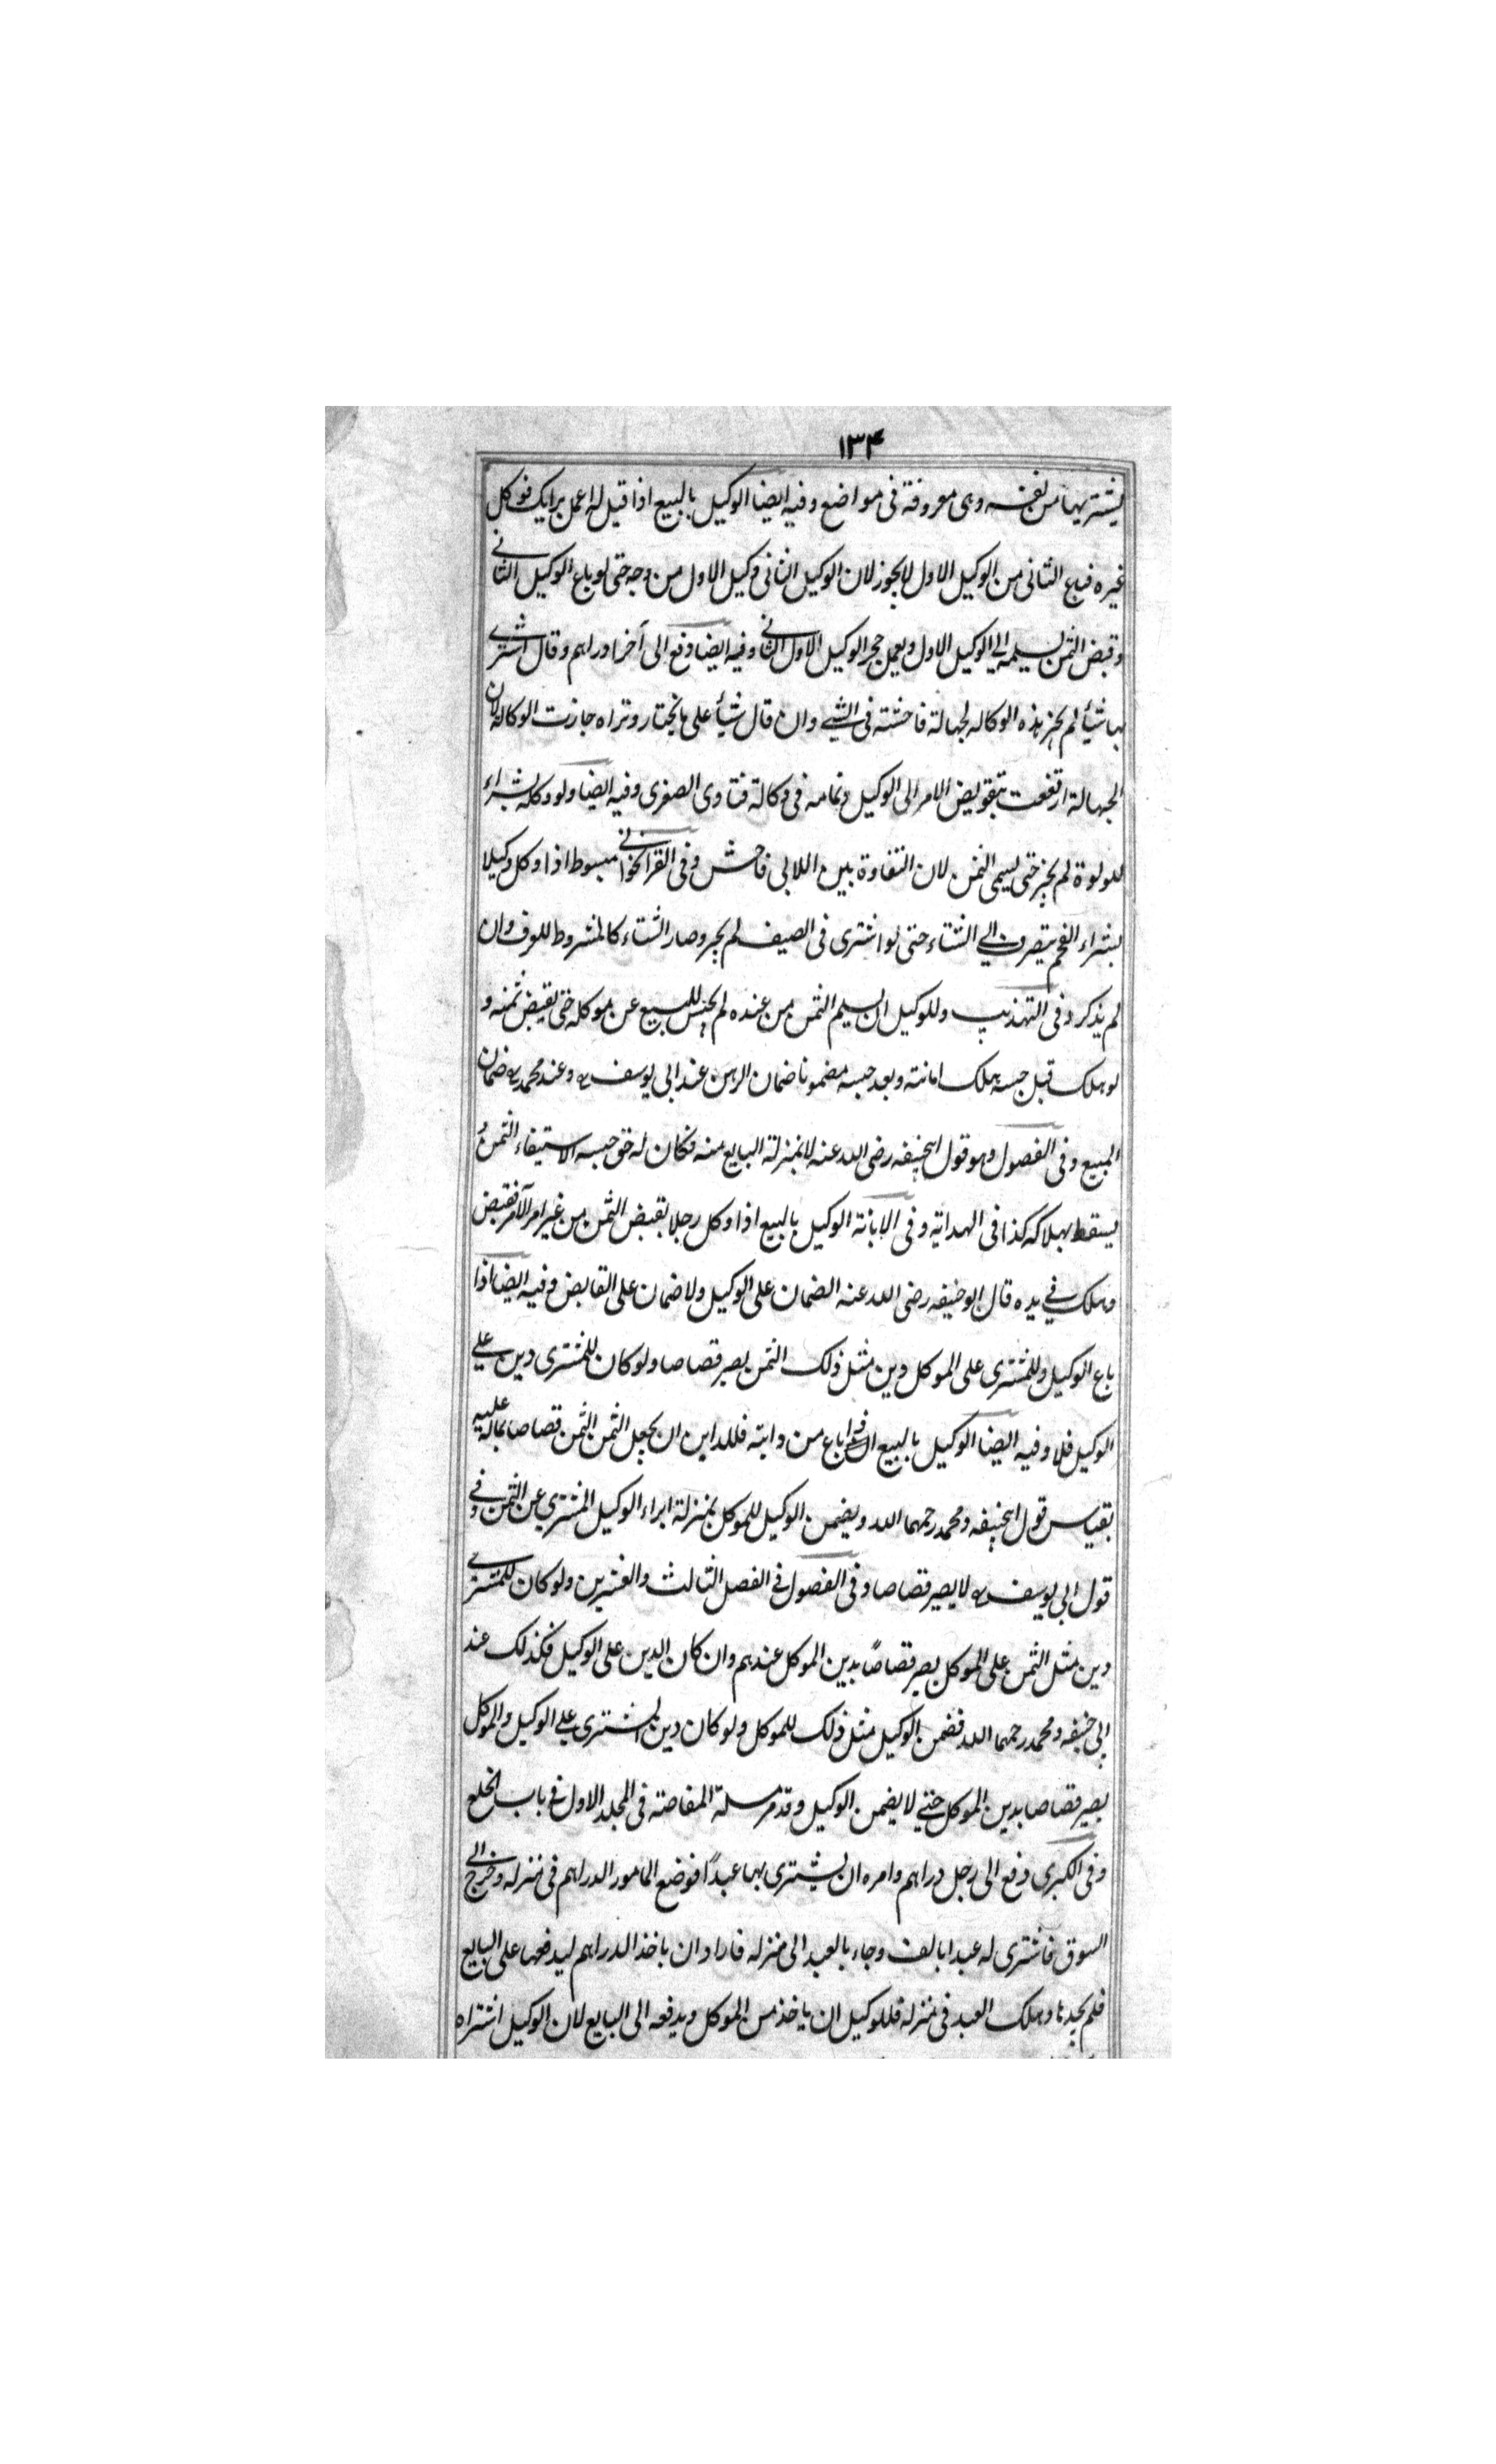 ١٣۴
يشتريها من نفسه وهى معروفة فى مواضع وفيه ايضا الوكيل بالبيع اذا قيل له اعمل برايك فوكل
غيره فباع الثانى من الوكيل الاول لا يجوز لان الوكيل الثانى وكيل الاول من وجه حتى لو باع الوكيل الثانى
وقبض الثمن يسلمه الى الوكيل الاول ويعمل حجر الوكيل الاول الثانى وفيه ايضا دفع الى آخر دراهم وقال اشترى
بها شيأ لم يجز هذه الوكاله لجهالة فاحشته فى الشئ وان قال شيأ على ما تختار وتراه جازت الوكاله لان
الجهالة ارتفعت بتفويض الامر الى الوكيل وتمامه فى وكالة فتاوى الصغرى وفيه ايضا ولو وكله بشراء
للولوة لم يجز حتى يسمى الثمن لان التفاوة بين اللالى فاحش وفى القراخوانى مبسوط اذا وكل وكيلا
بشراء الفحم يتصرف الى الشتاء حتى لو اشترى فى الصيف لم يجز وصار الشتاء كالمشروط للعرف وان
لم يذكر وفى التهذيب وللوكيل ان يسلم الثمن من عنده لم يحبس للبيع عن موكله حتى يقبض ثمنه و
لو هلك قبل حبسه هلك امانته وبعد حبسه مضمونا ضمان الرهن عند ابى يوسف رح وعند محمد رح ضمان
المبيع وفى الفصول وهو قول ابيحنيفه رضى الله عنه لا بمنزلة البايع منه فكان له حق حبسه الاستيفاء الثمن و
يسقط بهلاكه كذا فى الهداية وفى الابانة الوكيل بالبيع اذا وكل رجلا بقبض الثمن من غير امر الآمر فقبض
وهلك فى يده قال ابو حنيفه رضى الله عنه الضمان على الوكيل ولا ضمان على القابض وفيه ايضا اذا
باع الوكيل وللمشترى على الموكل دين مثل ذلك الثمن يصير قصاصا ولو كان للمشترى دين على
الوكيل فلا وفيه ايضا الوكيل بالبيع باع من دابنه فللداين ان يجعل الثمن الثمن قصاصا بماله عليه
بقياس قول ابيحنيفه ومحمد رحمهما الله ويضمن الوكيل للموكل بمنزلة ابراء الوكيل المشترى عن الثمن وفى
قول ابى يوسف رح لا يصير قصاصا وفى الفصول فى الفصل الثالث والعشرين ولو كان للمشترى
دين مثل الثمن على الموكل يصير قصاصًا بدين الموكل عندهم وان كان الدين على الوكيل فكذلك عند
ابى حنيفه ومحمد رحمهما الله فضمن الوكيل مثل ذلك للموكل ولو كان دين المشترى على الوكيل والموكل
يصير قصاصا بدين الموكل حتى لا يضمن الوكيل وقد مر مسئلة المقاصة فى المجلد الاول فى باب الخلع
وفى الكبرى دفع الى رجل دراهم وامره ان يشترى بها عبدًا فوضع المامور الدراهم فى منزله وخرج الى
السوق فاشترى له عبدا بالف وجاء بالعبد الى منزله فاراد ان ياخذ الدراهم ليدفعها على البايع
فلم يجدها وهلك العبد فى منزله فللوكيل ان ياخذ من الموكل ويدفعه الى البايع لان الوكيل اشتراه